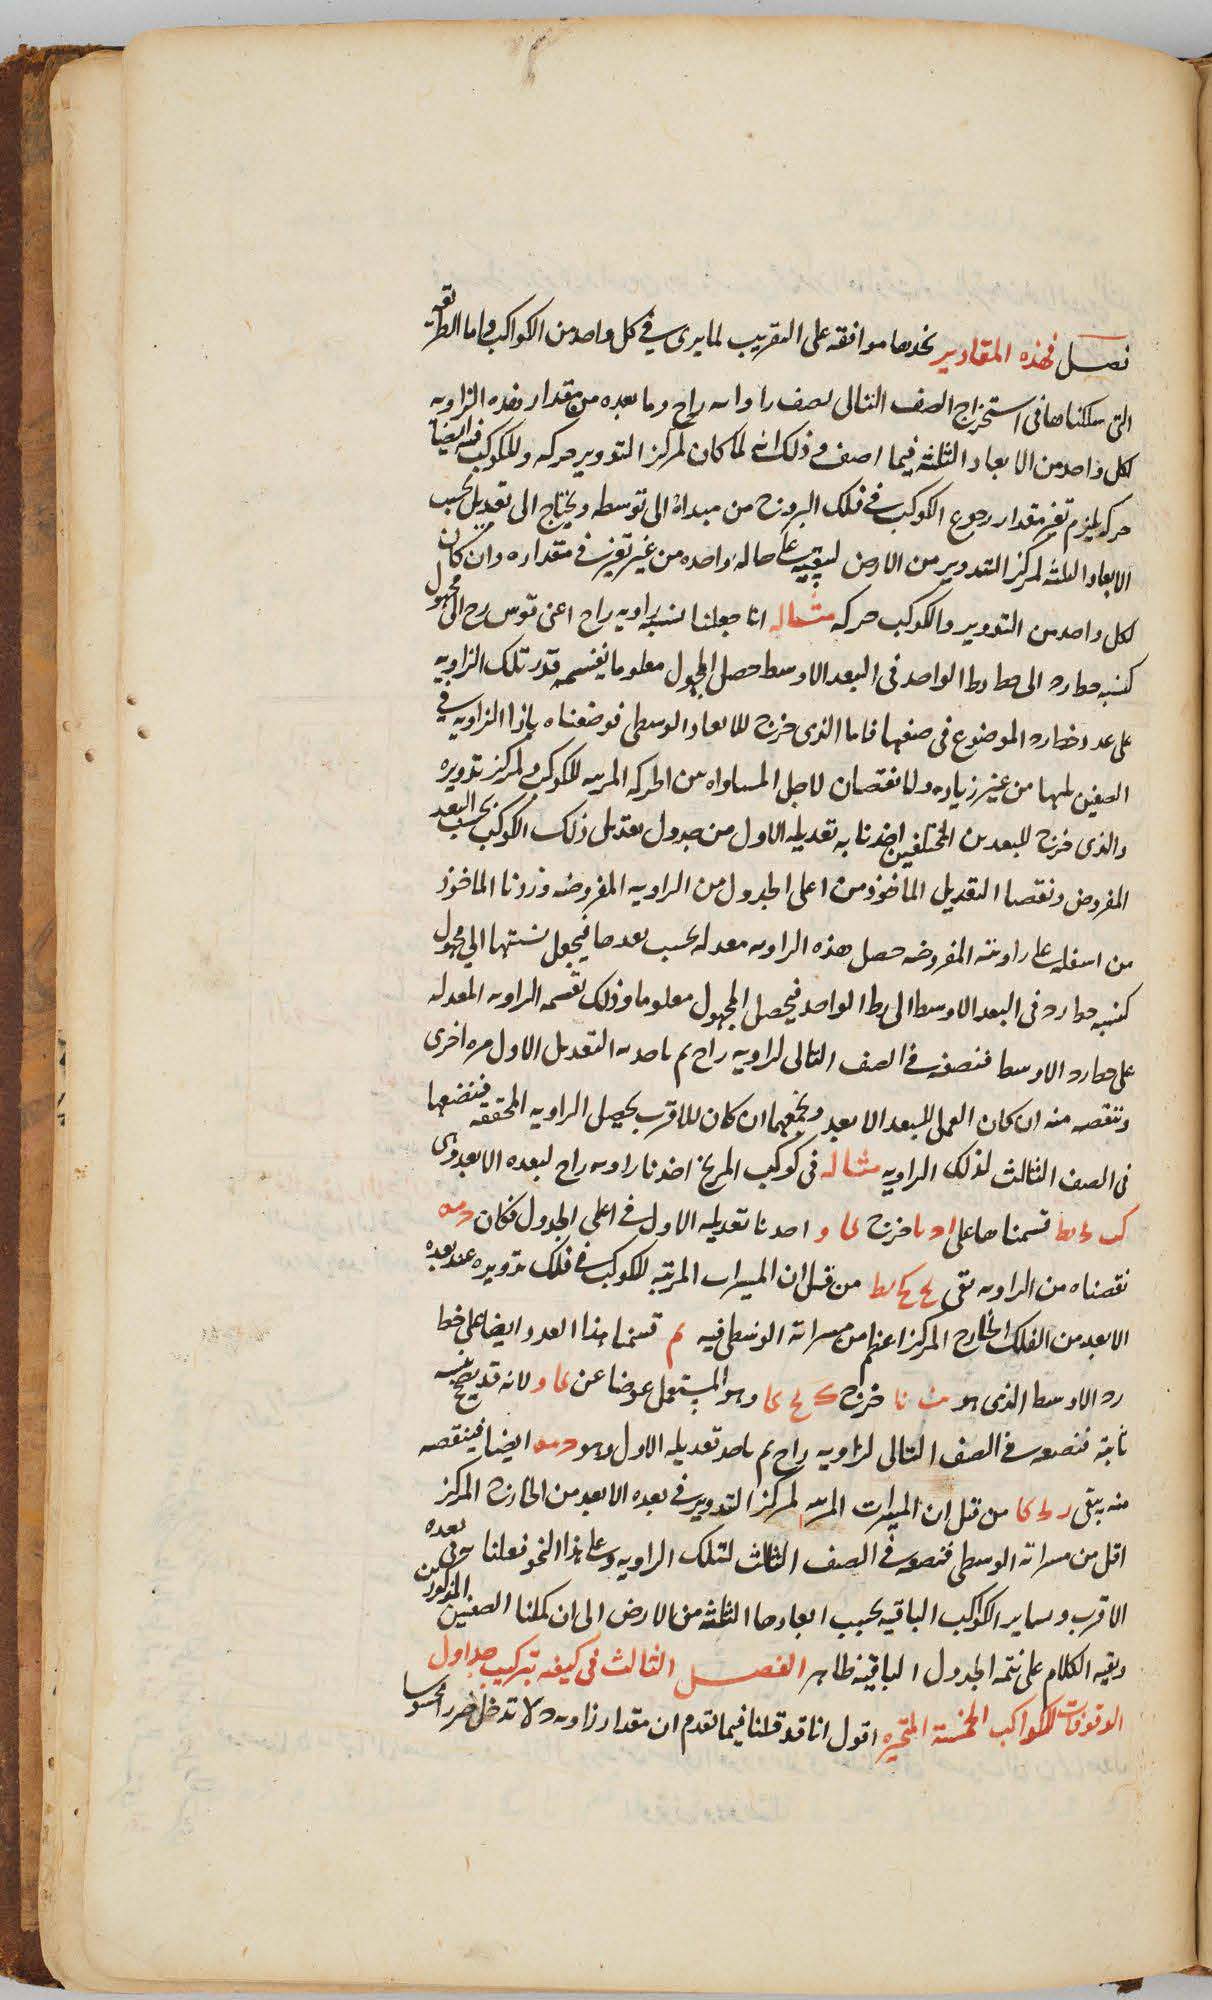 نصل فهذه المقادير نجدها موافقه على التقريب لما يرى في كل واحد من الكواكب واما الطريقه
التى سلكناها فى استخراج الصف التالى لصف زاوىه راح وما بعده من مقدار هذه الزاويه
لكل واحد من الابعاد الثلثه فيما اصف و ذلك انه لما كان لمركز التدوير حركه وللكوكب فيه ايضا
حركه يلزم تغير مقدار رجوع الكوكب في فلك البروج من مبداه الى توسطه ويحتاج الى تعديل بحسب
الابعاد الثلثه لمركز التدوير من الارض لتبقيه على حاله واحده من غير تغير في مقداره وان كان
لكل واحد من التدوير والكوكب حركه مثاله انا جعلنا نسبه زاويه راح اعنى قوس رح الى مجهول
كنسبه خط ارد الى خط رط الواحد فى البعد الاوسط حصل المجهول معلوما نقسمه قدر تلك الزاويه
على عدد خط ارد الموضوع فى صفها فاما الذى خرج للابعاد الوسطى فوضعناه بازا الزاويه في
الصفين يليها من غير زياده ولا نقصان لاجل المساواه من الحركه المرىيه للكوكب ولمركز تدويره
والذى خرج للبعدىن المختلفين اخذنا به تعديله الاول من جدول تعديل ذلك الكوكب بحسب البعد
المفروض ونقصنا التعديل الماخوذ من اعلى الجدول من الزاويه المفروضه وزدنا الماخوذ
من اسفله على زاويته المفروضه حصل هذه الزاوىه معدله بحسب بعدها فيجعل نسبتها الى مجهول
كنسبه خط ارد فى البعد الاوسط الى رط الواحد فيحصل المجهول معلوما وذلك بقسمه الزاوىه المعدله
على خط ارد الاوسط فنضعه في الصف التالى لزاويه راح ثم ناخذ به التعديل الاول مره اخرى
وننقصه منه ان كان العمل للبعد الابعد ونجمعهما ان كان للاقرب يحصل الزاويه المحققه فنضعها
فى الصف الثالث لذلك الزاويه مثاله فى كوكب المريخ اخذنا زاوىه راح لبعده الابعد وهى
قسمناها على خرج و اخذنا تعديله الاول في اعلى الجدول فكان
نقصناه من الزاوىه بقى من قبل ان المسيرات المرئيه للكوكب في فلك تدويره عند بعده
الابعد من الفلك الخارج المركز اعظم من مسيراته الوسطى فيه ثم قسمنا هذا العدد ايضا على خط
رد الاوسط الذى هو خرج وهو المستعمل عوضا عن لانه قد يصح نسبه
ثابته فنضعه في الصف التالى لزاويه راح ثم ناخذ تعديله الاول وهو ايضا فينقصه
منه يبقى من قبل ان المسيرات المرىيه لمركز التدوير في بعده الابعد من الخارج المركز
اقل من مسيراته الوسطى فنضعه في الصف الثالث لتلك الزاويه وعلى هذا النحو فعلنا في بعده
الاقرب وساير الكواكب الباقيه بحسب ابعادها الثلثه من الارض الى ان كملنا الصفين المذكورين
وبقيه الكلام على تتمه الجدول الباقيه ظاهر الفصل الثالث فى كيفيه تركيب جداول
الوقوفات للكواكب الخمسة المتحيره اقول انا قد قلنا فيما تقدم ان مقدار زاويه د لا تدخل ضررا محسوسا